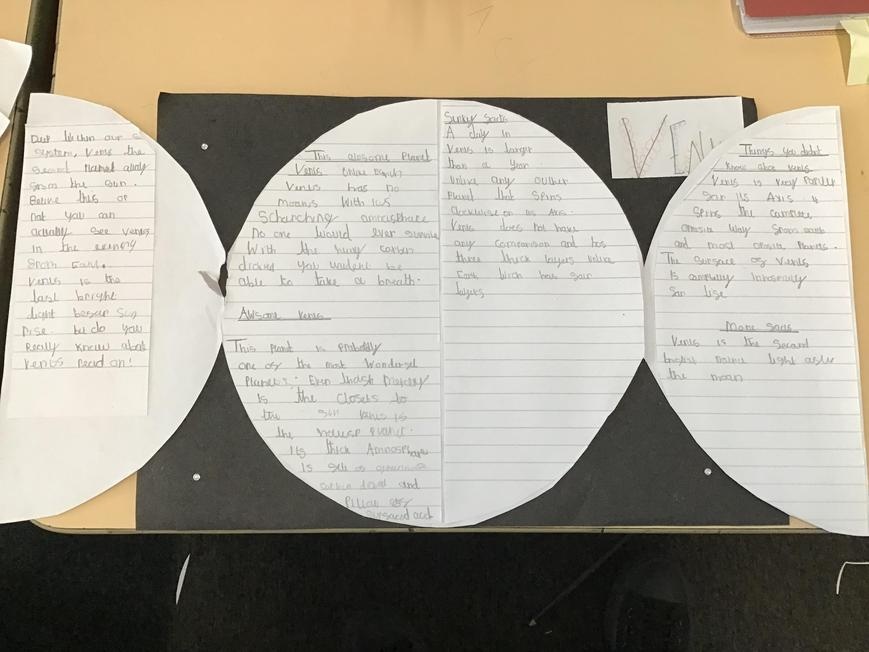 Deep Within our s
system, Venus the
Second Planet away
from the sun.
Belive this or
not you can
actually See venus
In the evenory
from Earth.
Venus is the
last bright
light befor Sun
rise. but do you
Really know about
Venus read on!
This awsome Planet
Venus Unlike Earth
Venus has no
moons With its
Schorching atmosphare
No one would ever survive
With the hevy carbin
dioxide you wuldent be
able to take a breath.
Awsome Venus
This Planet is probably
one of the most Wonderfel
Planets. Even though
Is the Closets to
the Sun Venus is
the Planet.
Its thick Atmosphare
Is
and
Pillow of
acid
Funky facts
A day in
Venus is larger
than a Year
Unlike any outher
Planet that Spins
clockwise on its Axis.
Venus does not have
any comparason and has
three thick layers Unlike
Earth Witch has fair
layers
VENU
Things you didn't
know about Venus
Venus is very
for Its Axis it
Spins the Complete
oposite Way from earth
and most oposite Planets.
The Surface of Venus
Is completly
for life
More facts
Venus is the Second
brightest light after
the moon